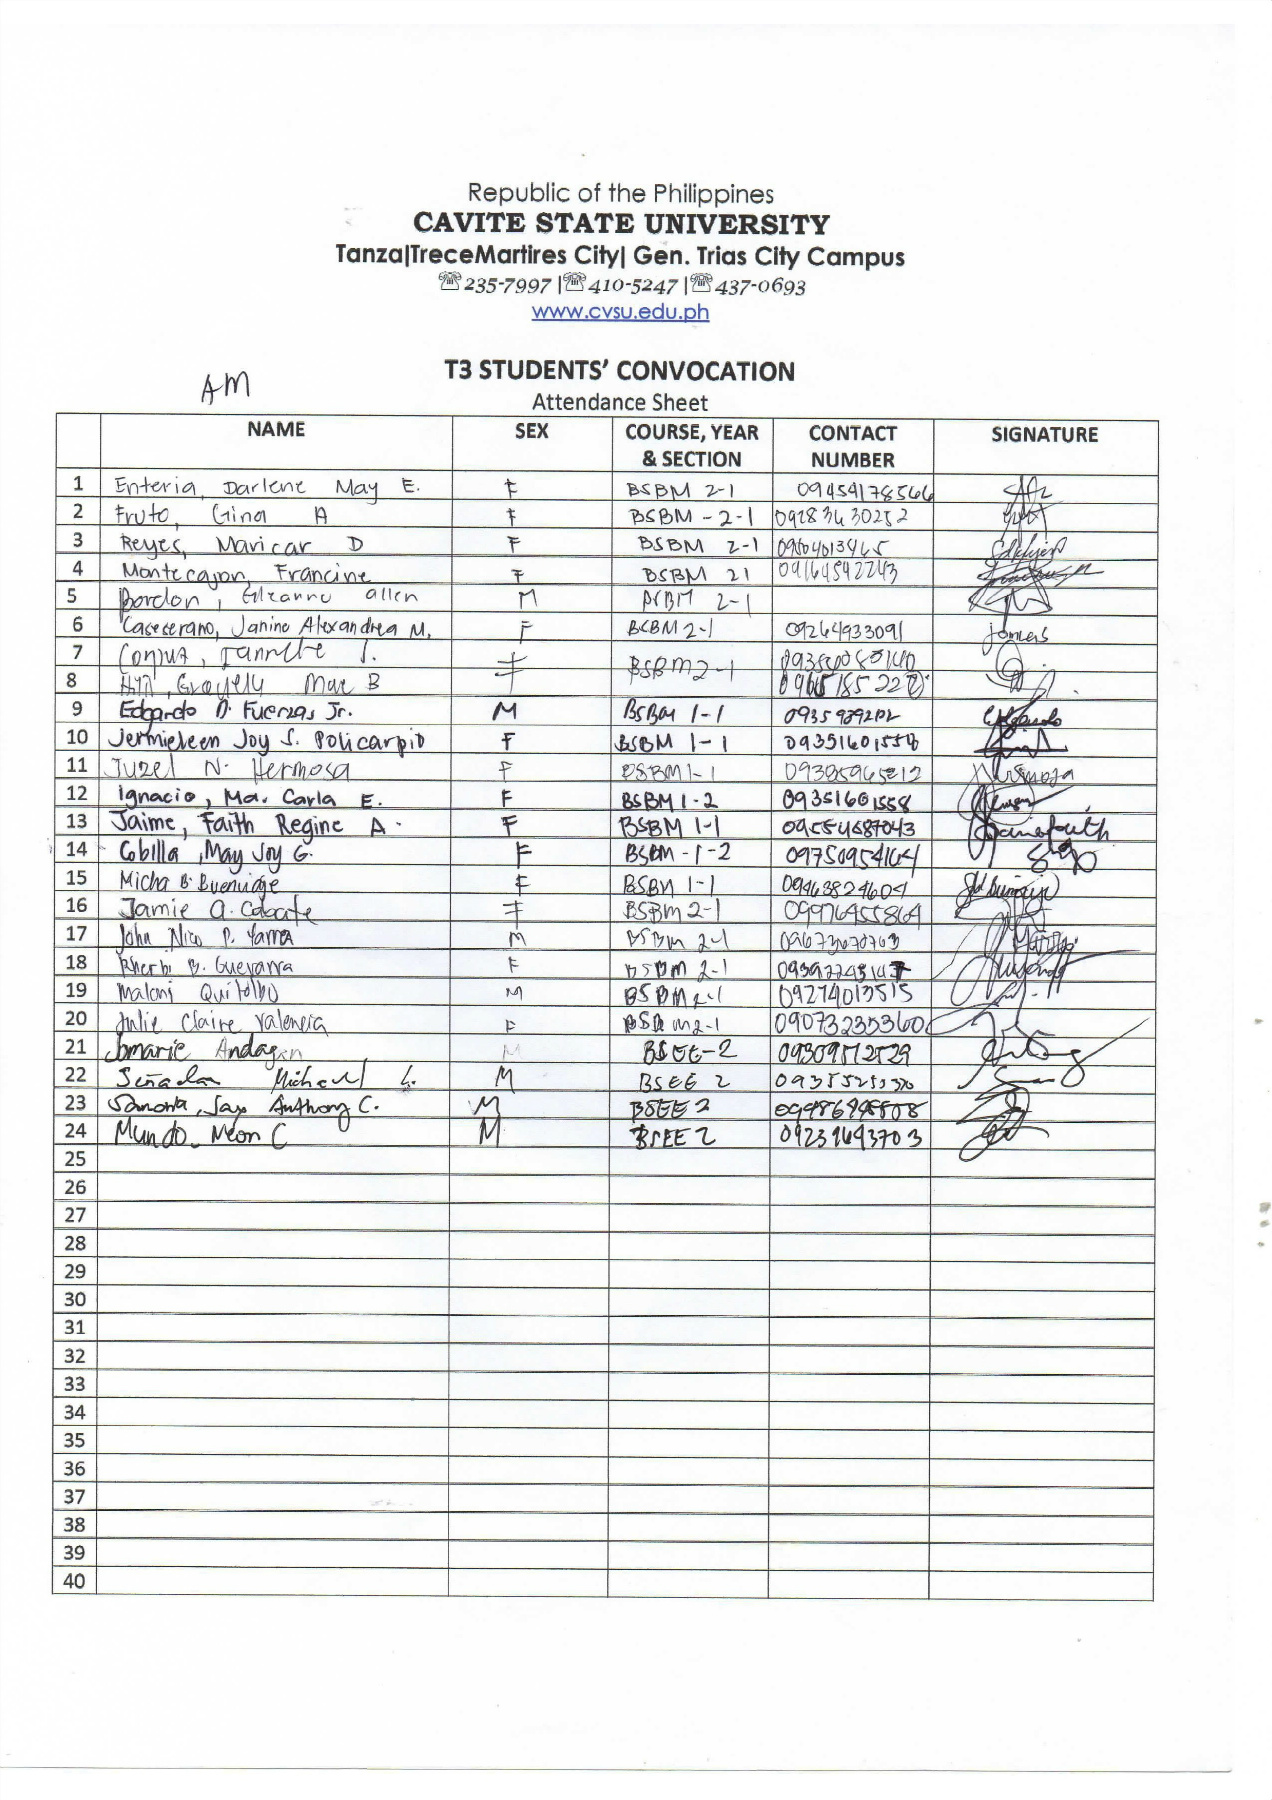 Republic of the Philippines
CAVITE STATE UNIVERSITY
Tanza|TreceMartires City| Gen. Trias City Campus
☏235-7997 |☏410-5247 |☏437-0693
www.cvsu.edu.ph
T3 STUDENTS' CONVOCATION
AM
Attendance Sheet
NAME SEX COURSE, YEAR & SECTION CONTACT NUMBER SIGNATURE
1 Enteria, Darlene May E. F BSBM 2-1 09454178566
2 Fruto, Gina A F BSBM - 2-1 09283630252
3 Reyes, Maricar D F BSBM 2-1 09504013465
4 Montecajon, Francine F BSBM 21 09164592243
5 Bordon, allen M BSBM 2-1
6 Casecerano, Janine Alexandrea M. F BSBM 2-1 09264933091
7 F BSBM 2-1
8 Mae B
9 Edgardo D. Fuerzas Jr. M BSBM 1-1
10 Jermieleen Joy S. Policarpio F BSBM 1-1 09351601558
11 Juzel N. Hermosa F BSBM 1-1 09385965212
12 Ignacio, Ma. Carla E. F BSBM 1-2 09351601558
13 Jaime, Faith Regine A. F BSBM 1-1 09554687043
14 Cobilla, May Joy G. F BSBM-1-2 09750954164
15 Micha B. F BSBM 1-1 09463824604
16 Jamie A. Cabate F BSBM 2-1 09976455864
17 John Nico P. Yarra M BSBM 2-1 09673070763
18 Rherbi B. Guevarra F BSBM 2-1
19 M BSBM 2-1 09274013515
20 Julie Claire Valencia F BSBM 2-1 09073235360
21 Jomarie Andagan M BSEE-2 09309512529
22 Michael L. M BSEE 2
23 Samonta, Jay Anthony C. M BSEE 2
24 Mundo, Neon C M BSEE 2 09239643703
25
26
27
28
29
30
31
32
33
34
35
36
37
38
39
40